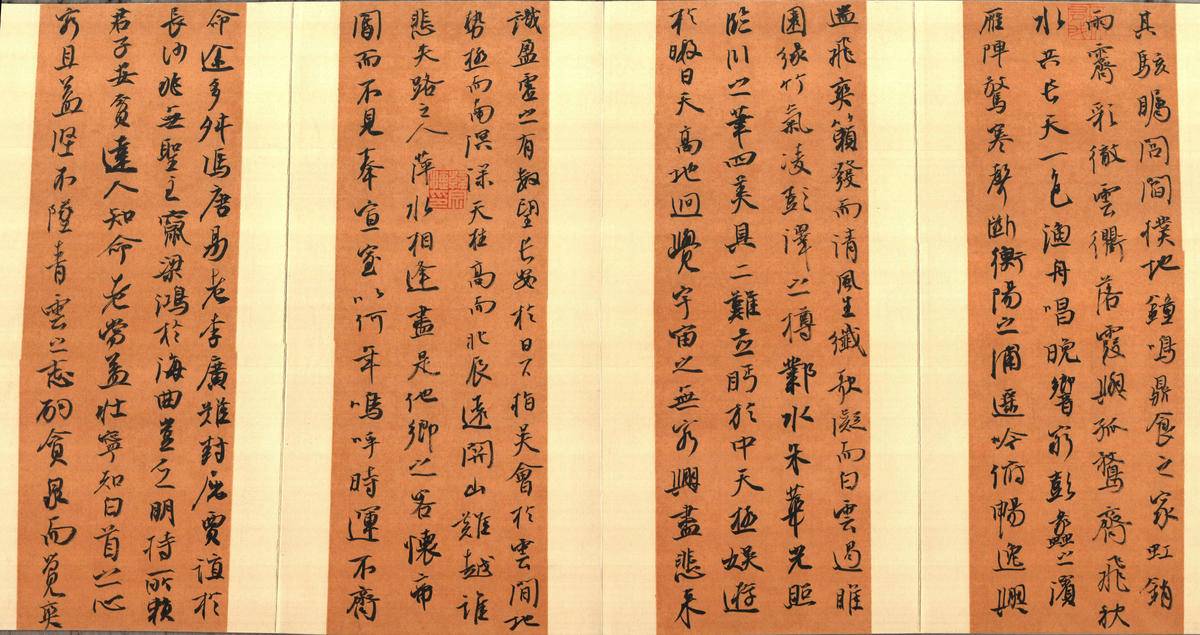 其駭矚閭閻撲地鐘鳴鼎食之家虹銷
雨霽彩徹雲衢落霞與孤鶩齊飛秋
水共長天一色漁舟唱晚響窮彭蠡之濱
雁陣驚寒聲斷衡陽之浦遥吟俯暢逸興
遄飛爽籟發而清風生纖歌凝而白雲遏睢
園緑竹氣凌彭澤之樽鄴水朱華光照
臨川之筆四美具二難並眄於中天極娱遊
於暇日天高地迥覺宇宙之無窮興盡悲來
識盈虛之有數望長安於日下指吳會於雲間地
勢極而南溟深天柱高而北辰遠關山難越誰
悲失路之人萍水相逢盡是他鄉之客懷帝
閽而不見奉宣室以何年嗚呼時運不齊
命途多舛馮唐易老李廣難封屈賈誼於
長沙非無聖主竄梁鴻於海曲豈乏明時所賴
君子安貧達人知命老當益壯寧知白首之心
窮且益堅不墜青雲之志酌貪泉而覺爽